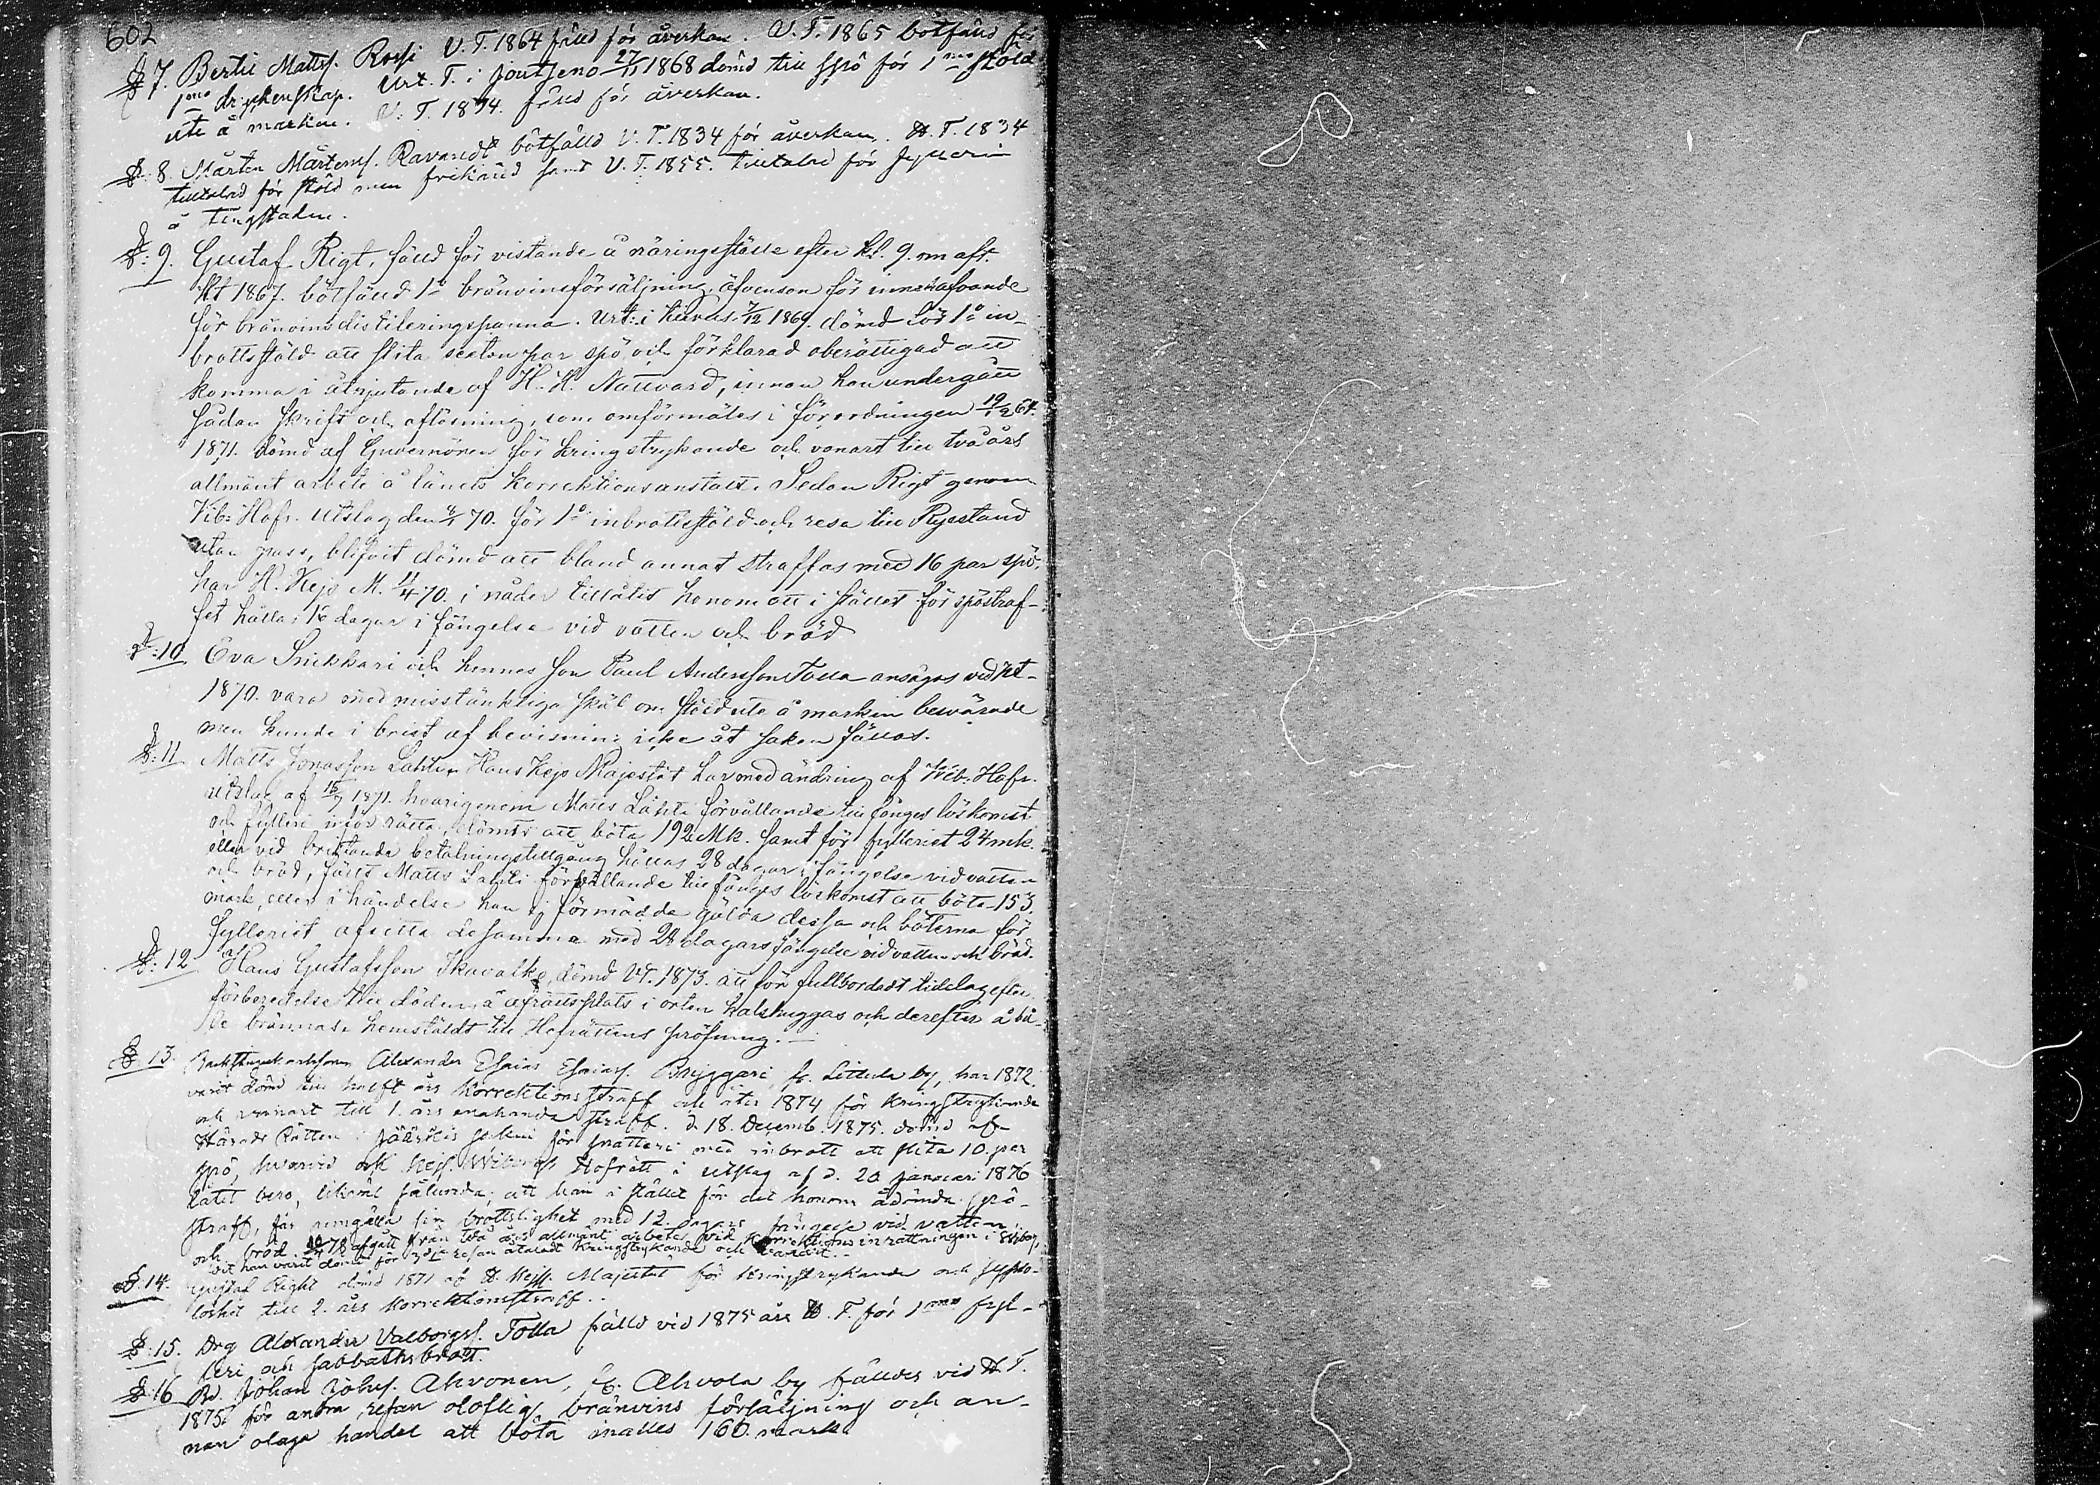 602
§ 7. Bertil Matts. Rossi V. T. 1864 fälld för åverkan. V. T. 1865 botfälld för
1mo dryckenskap. Urt. T. i Joutseno 27/11 1868 dömd till spö för 1mo stöld
ute å marken. V. T. 1874. fälld för åverkan.
§: 8. Mårten Mårtens. Ravandt botfälld V. T. 1834 för åverkan. H. T. 1834
tilltalad för stöld men frikänd samt V. T. 1855. tilltalad för fylleri
å tingstaden.
§: 9. Gustaf Rigt, fälld för vistande å näringsställe efter kl. 9. om aft.
Ht 1867. bötfälld 1o bränvinsförsäljning, äfvensom för innehafvande
för bränvins distileringspanna. Urt. i Kuvas 7/12 1869. dömd för 1o in-
brottsstöld att slita sexton par spö och förklarad oberättigad att
komma i åtnjutande af H. H. Nattvard, innan han undergått
sådan skrift och aflösning, som omförmäles i förordningen 19/12 64.
1871. dömd af Guvernören för kringstrykande och vanart till två års
allmänt arbete å länets korrektionsanstalt. Sedan Rigt genom
Vib: Hofr. Utslag den 4/1 70. för 1o inbrottsstöld och resa till Ryssland
utan pass, blifvit dömd att bland annat straffas med 16 par spö,
har H. Kejs M. 11/4 70. i nåder tillåtit honom att i stället för spöstraf-
fet hållas 16 dagar i fängelse vid vatten och bröd
§: 10 Eva Snikkari och hennes son Paul Andersson Tolla ansågos vid Ht
1870. vara med misstänkliga skäl om stöld ute å marken besvärade
men kunde i brist af bevisning icke åt saken fällas.
§: 11 Matts Jonasson Lahti. Hans Kejs Majestät har med ändring af Vib. Hofr.
utslag af 15/7 1871. hvarigenom Matts Lahti förvållande till fånges löskomst
och fylleri inför rätta, dömts att böta 192 Mk. samt för fylleriet 24 mk.
eller vid bristande betalningstillgång hållas 28 dagar i fängelse vid vatten
och bröd, fällt Matts Lahti förvållande till fånges löskomst att böta 153.
mark, eller i händelse han ej förmådde gälda dessa och böterna för
fylleriet afsitta desamma med 28 dagars fängelse vid vatten och bröd.
§: 12 Hans Gustafsson Ikavalko, dömd V.T. 1873. att för fullbordadt tidelag efter
förberedelse till döden, å afrättsplats i orten halshuggas och derefter å bå-
le brännas. hemstäldt till Hofrättens pröfning.
§ 13. Alexander Esaias Esaiass. Bryggari, fr. by, har 1872.
varit dömd till halft års korrektionsstraff och åter 1874 för kringstrykande
och vanart till 1. års enahanda straff. d. 18. Decemb. 1875. dömd af
Härads Rätten i Jääskis socken för snatteri med inbrott att slita 10. par
spö, hvarvid ock Kejs. Wiborgs Hofrätt i utslag af d. 20 januari 1876
låtit bero, likväl sålunda, att han i stället för det honom ådömda spö-
straff, får umgälla sin brottslighet med 12. dagars fängelse vid vatten
och bröd. 78 afgått från två års allmänt arbete vid korrektionsinrättningen i Wiborg,
dit han varit dömd för resan åtalad kringstrykande och vanart.
§. 14. Gustaf Right dömd 1871 af H. Kejs. Majestät för kringstrykande och syslo-
löshet till 2. års korrektionsstraff.
§: 15. Drg Alexander Valborgs. Tolla fälld vid 1875 års H. T. för 1mo fyl-
leri och sabbathsbrott.
§: 16 Bd. Johan Johs. Ahvonen, fr. Ahvola by fälldes vid H. T.
1875. för andra resan oloflig bränvins försäljning och an-
nan olaga handel att böta inalles 160. mark